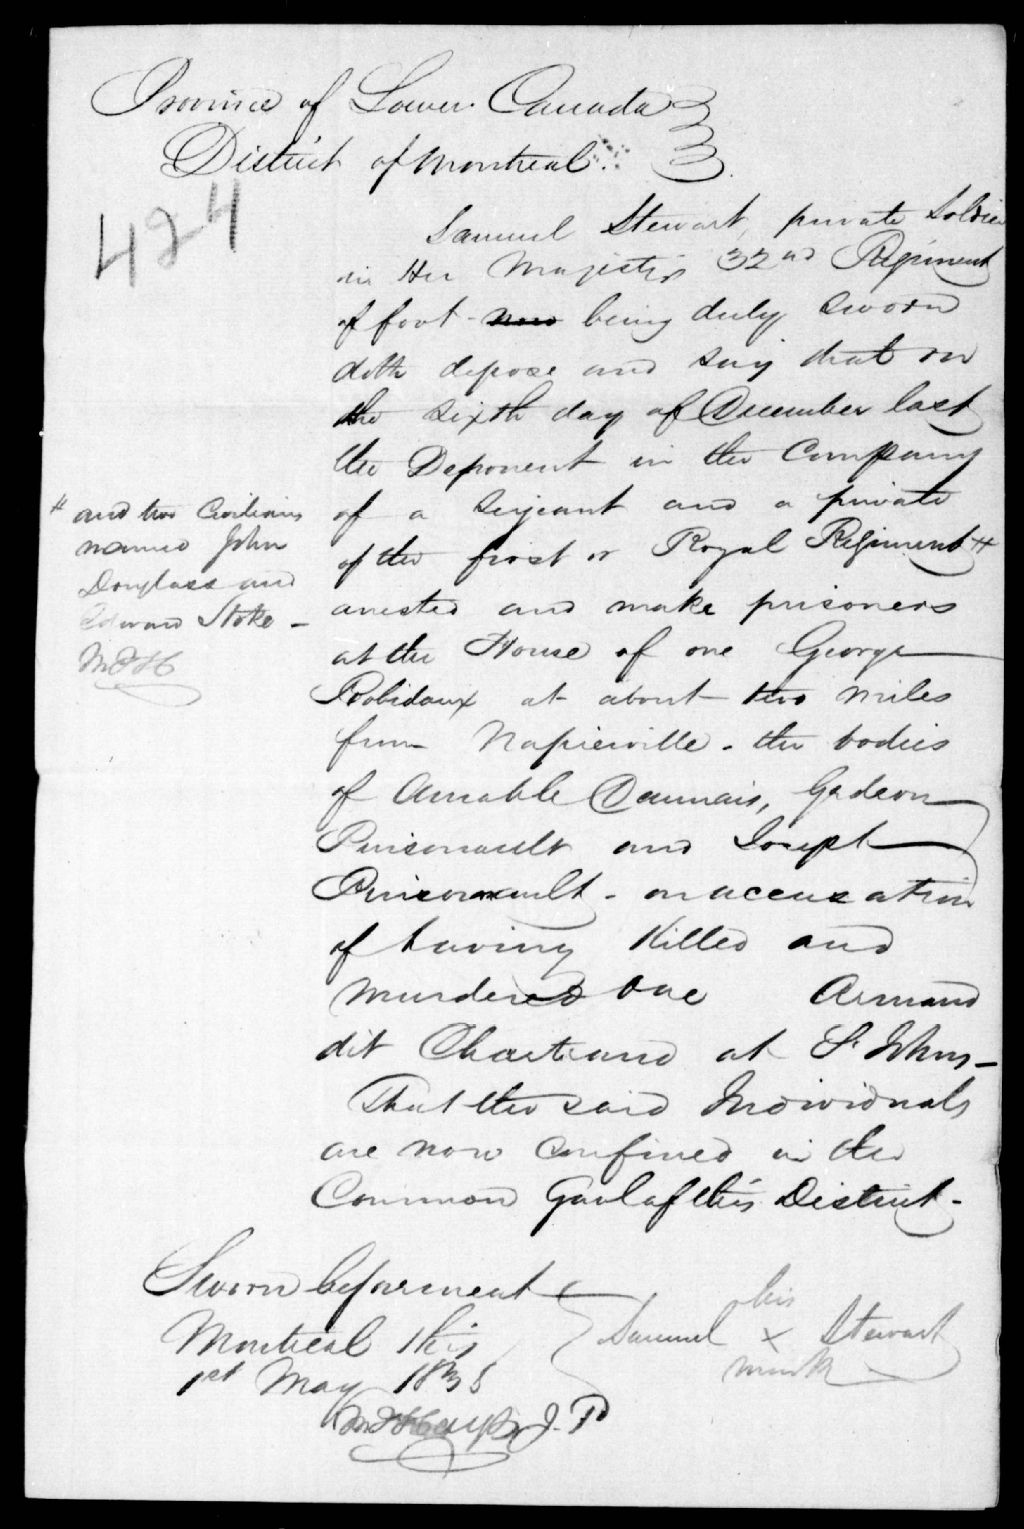 Province of Lower Canada
District of Montreal
424
Samuel Stewart, private Soldier
in Her Majestys 32nd Regiment
of foot now being duly sworn
doth depose and say that on
the sixth day of December last
the Deponent in the Company
of a Serjeant and a private
of the first or Royal Regiment #
# and two Civilians
named John
Douglass and
Edward Stoke -
arrested and make prisoners
at the House of one George
Robidoux at about two miles
from Napierville - the bodies
of Amable Daunais, Gedeon
Pinsonault and Joseph
Pinsonnault - on accusation
of having Killed and
murdered one Armand
dit Chartrand at St Johns -
That the said Individuals
are now confined in the
Common Gaol of this District -
Sworn before me at
Montreal this
1st May 1838
his
Samuel x Stewart
mark
J. P